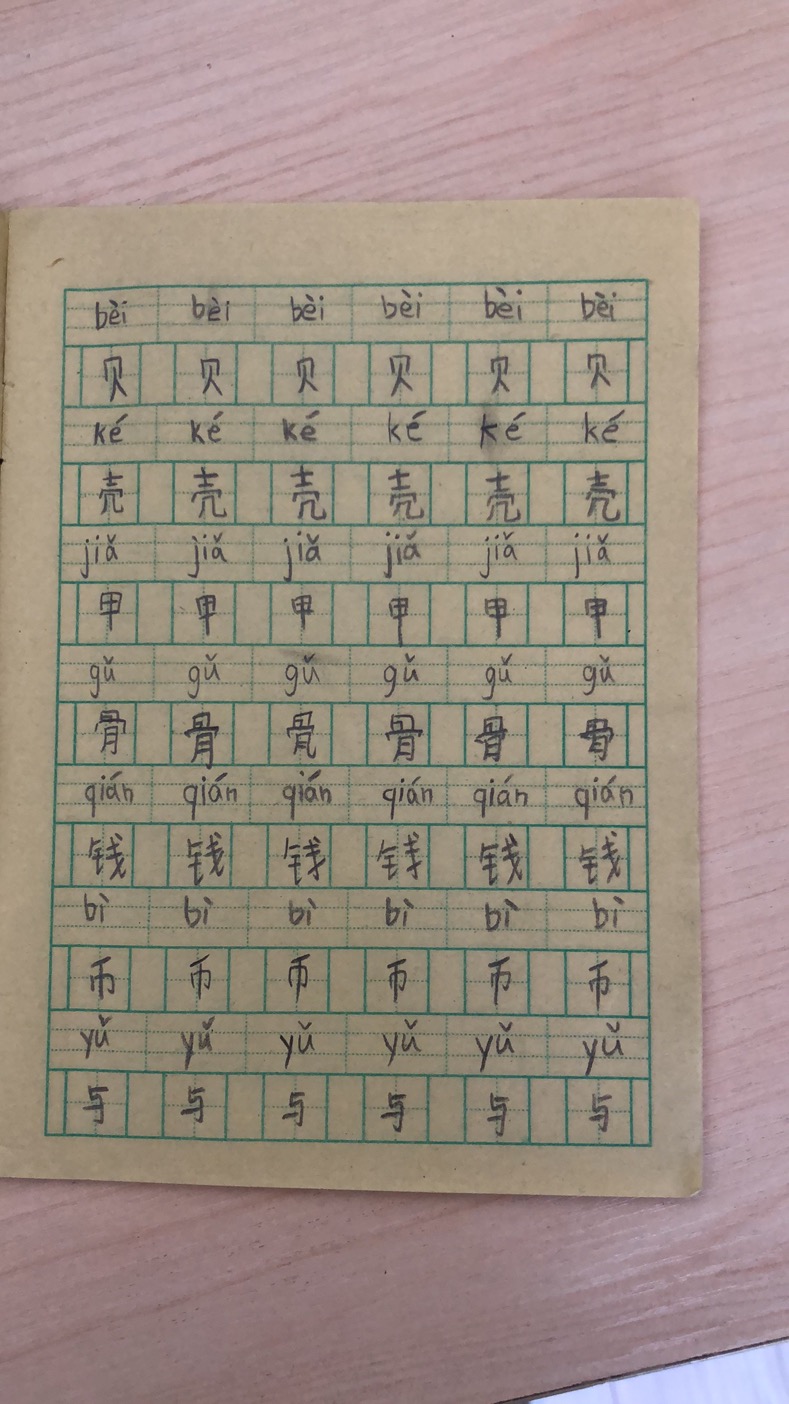 bèi bèi bèi bèi bèi bèi
贝 贝 贝 贝 贝 贝
ké ké ké ké ké ké
壳 壳 壳 壳 壳 壳
jiǎ jiǎ jiǎ jiǎ jiǎ jiǎ
甲 甲 甲 甲 甲 甲
gǔ gǔ gǔ gǔ gǔ gǔ
骨 骨 骨 骨 骨 骨
qián qián qián qián qián qián
钱 钱 钱 钱 钱 钱
bì bì bì bì bì bì
币 币 币 币 币 币
yǔ yǔ yǔ yǔ yǔ yǔ
与 与 与 与 与 与